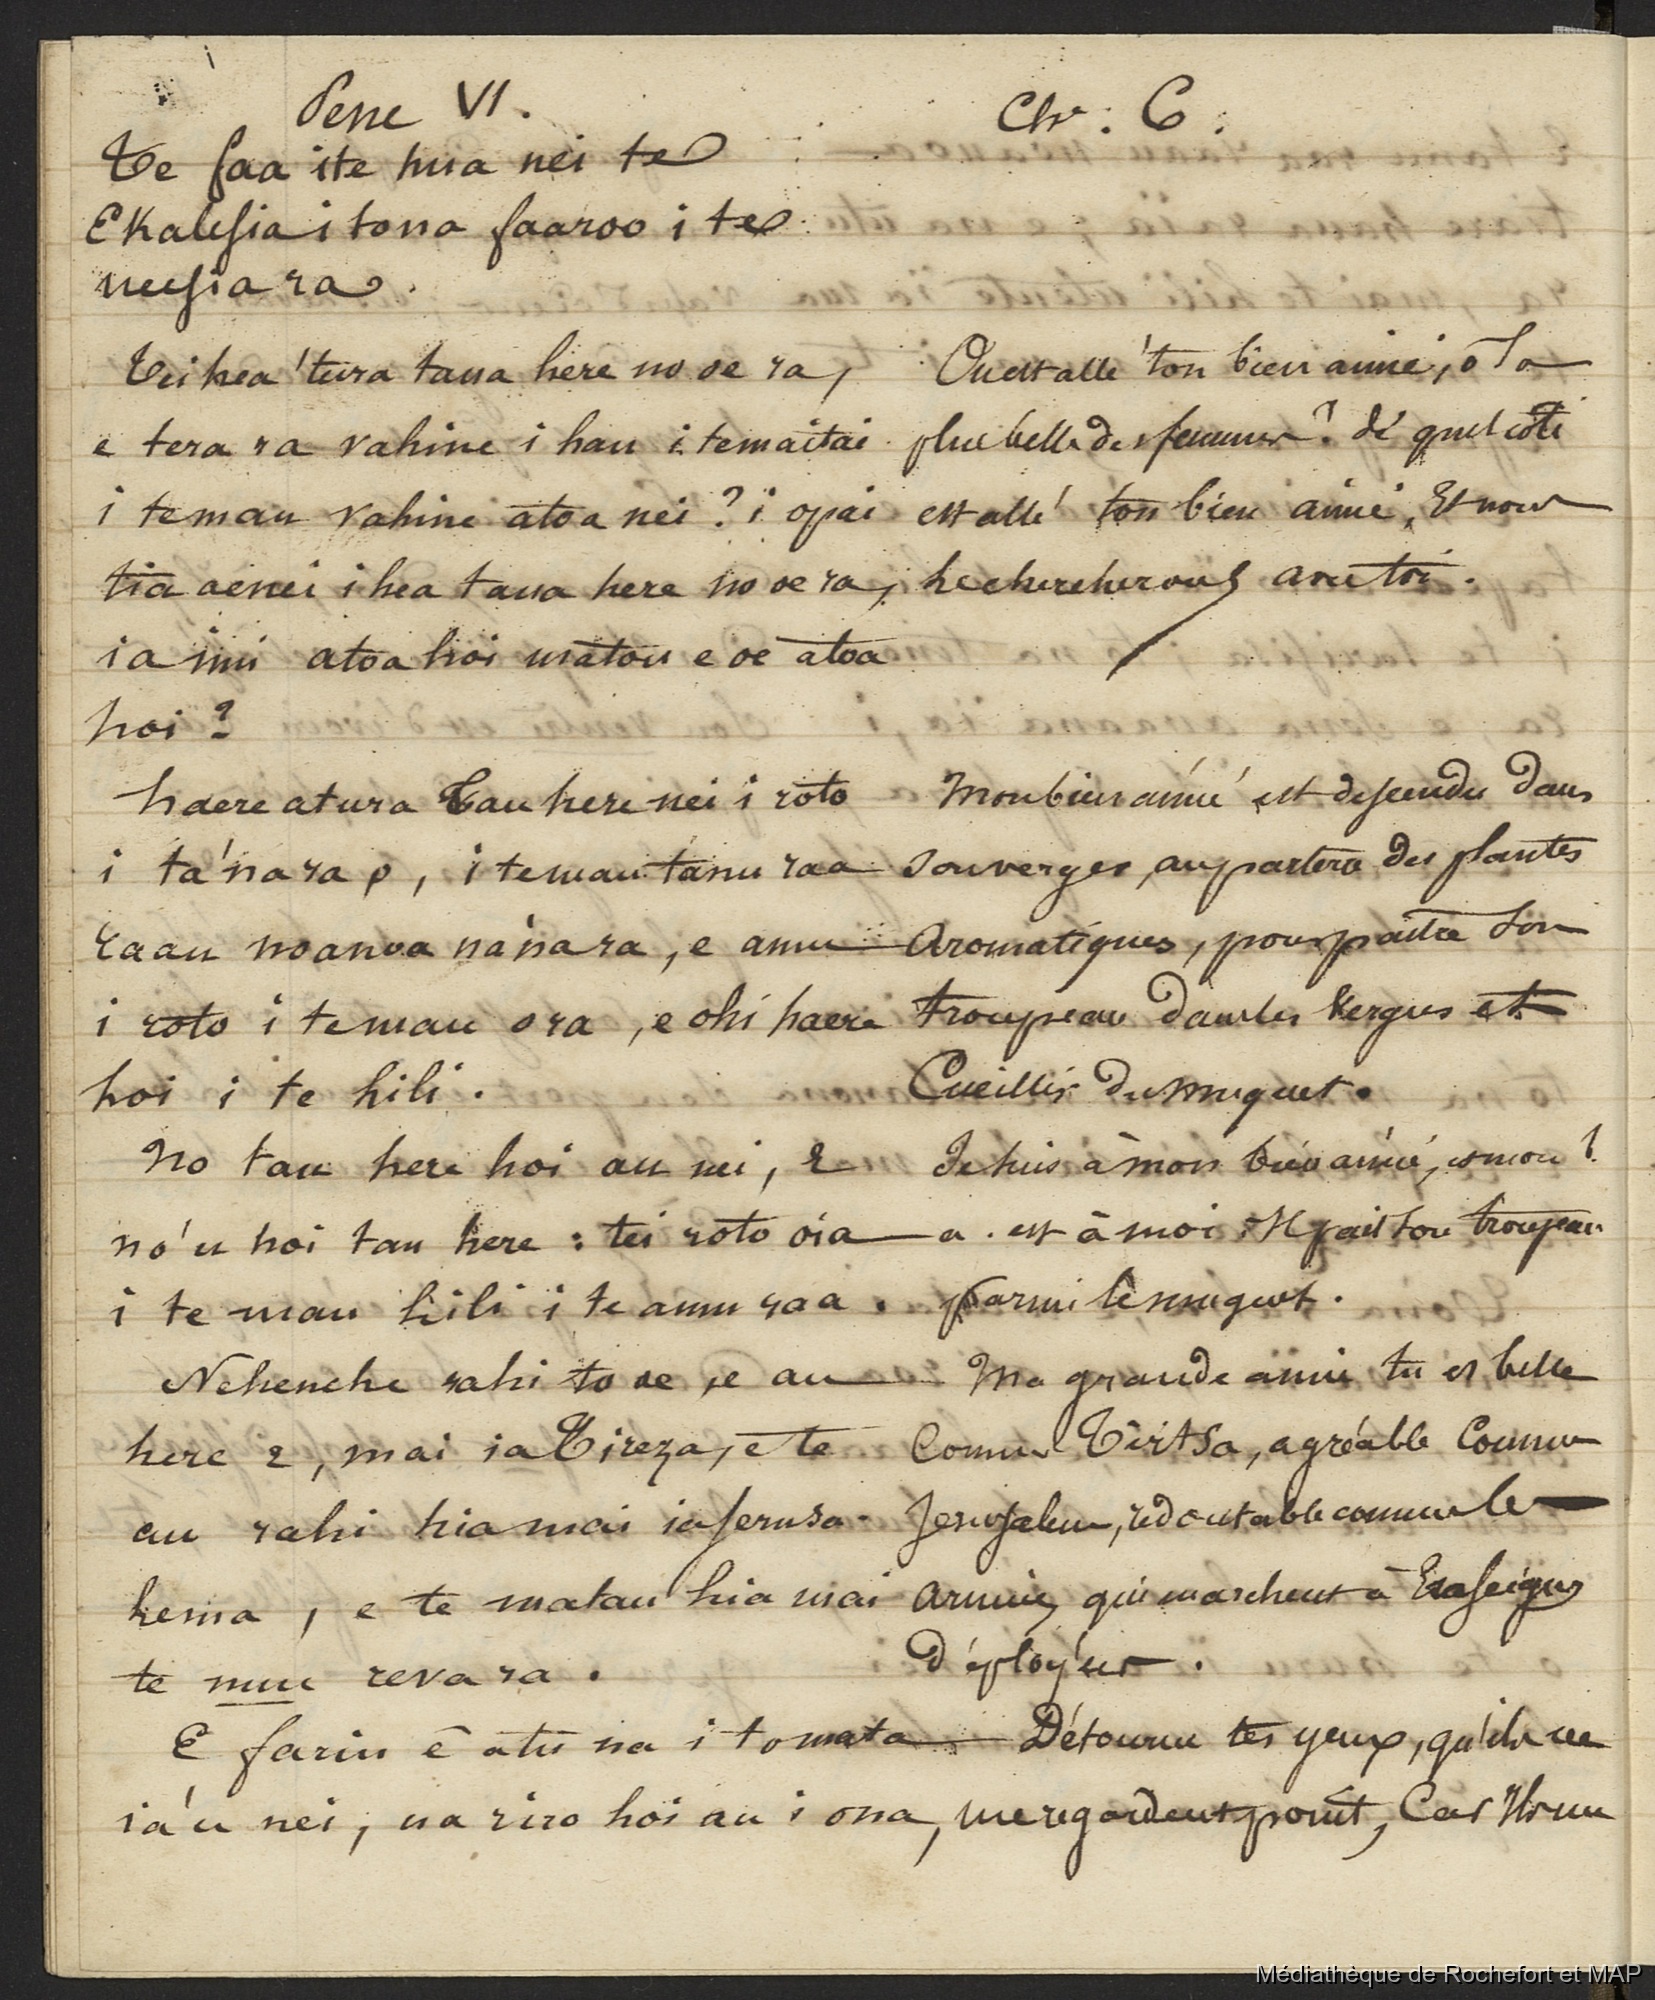 Pene VI.
Te faa ite hua nei te
Ekalesia i tona faaroo i te
mesia ra.
Tei hea 'tura taua here no oe ra,
e tera ra vahine i hau i te maitai
i te mau vahine atoa nei ? i opai
tia aenei i hea taua here no oe ra,
ia imi atoa hoi matou e oe atoa
hoi ?
haere atura Tau here nei i roto
i ta'na ra o, i te mau tanu raa
raau noanoa na'na ra, e amu
i roto i te mau o ra, e ohi haere
hoi i te lili.
No tau here hoi au nei, e
no'u hoi tau here : tei roto oia
i te mau lili i te amu raa.
Nehenehe rahi to oe, e au
here e, mai ia Tireza, e te
au rahi hia mai ia Jerusa-
lema, e te matau hia mai
te nuu reva ra.
E fariu ê atu na i to mata
ia'u nei, ua riro hoi au i ona,
Ch. : 6.
Ou est allé ton bien aimé, ô la
plus belle des femmes ? de quel coté
est allé ton bien aimé, Et nous
le chercherons avec toi.
Mon bien aimé est descendu dans
son verger, au parterre des plantes
Aromatiques, pour paître son
troupeau dans les Vergers et
Cueillir du muguet.
Je suis à mon bien aimé, et mon b.
a. est à moi. Il pait son troupeau
parmi le muguet.
Ma grande amie tu es belle
Comme Tirtsa, agréable Comme
Jerusalem, redoutable comme le
armées qui marchent à Enseignes
déployées.
Détourne tes yeux, qu'ils ne
me regardent point, Car Ils me
Médiathèque de Rochefort et MAP